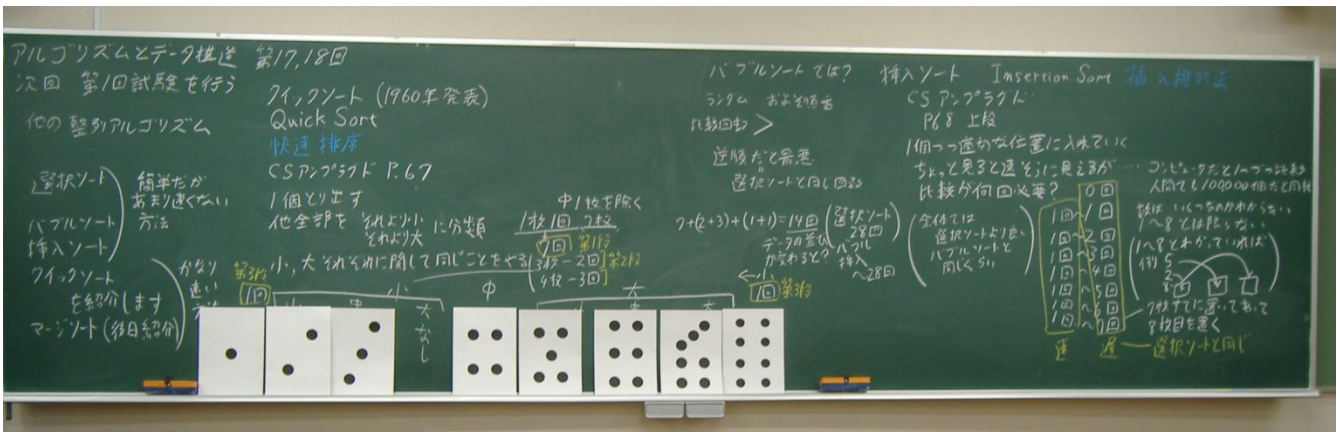 アルゴリズムとデータ構造 第17,18回
次回 第1回試験を行う
他の整列アルゴリズム
選択ソート
バブルソート
挿入ソート
簡単だが
あまり速くない
方法
クイックソート
を紹介します
マージソート(後日紹介)
かなり
速い
方法
クイックソート (1960年発表)
Quick Sort
快速排序
CSアンプラグド P.67
1個とり出す
他全部を それより小
それより大 に分類
小,大それぞれに関して同じことをやる
中1枚を除く
1枚1回 7枚
7回 第1段
3枚-2回 第2段
4枚-3回
第3段
1回
小 中 大
小 中 大
なし
大
←小
1回 第3段
バブルソートでは?
ランダム およそ順番
比較回数 >
逆順だと最悪
選択ソートと同じ回数
7+(2+3)+(1+1)=14回
選択ソート
28回
バブル
挿入
~28回
データの並び
が変わると?
挿入ソート Insertion Sort 插入排列法
CSアンプラグド
P68 上段
1個づつ適切な位置に入れていく
ちょっと見ると速そうに見えるが……
比較が何回必要?
コンピュータだと1つづつ比較
人間でも100,000個だと同様
全体では
選択ソートより良い
バブルソートと
同じくらい
0回
1回
1回~2回
1回~3回
1回~4回
1回~5回
1回~6回
1回~7回
速 遅 — 選択ソートと同じ
数はいくつなのかわからない
1~8とは限らない
1~8とわかっていれば
例 5
7枚すでに置いてあって
8枚目を置く